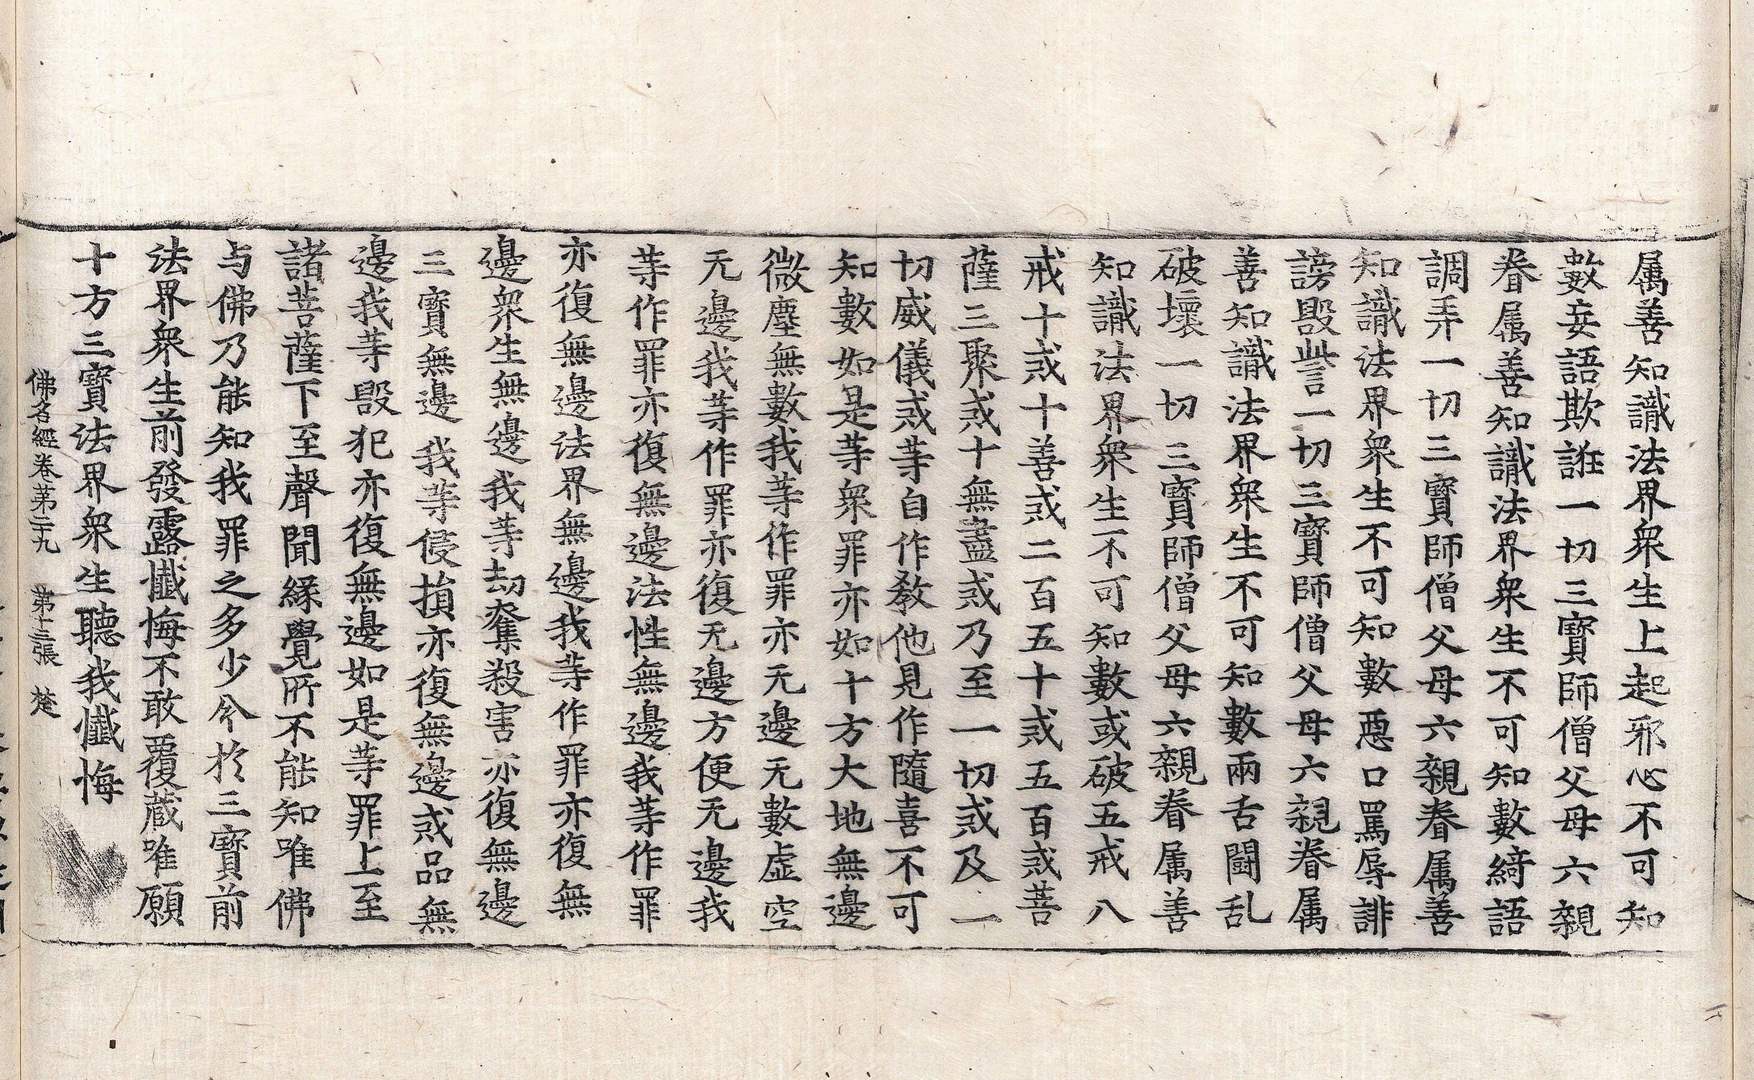 属善知識法界衆生上起邪心不可知
數妄語欺誑一切三寶師僧父母六親
眷属善知識法界衆生不可知數綺語
調弄一切三寶師僧父母六親眷属善
知識法界衆生不可知數惡口罵辱誹
謗毀訾一切三寶師僧父母六親眷属
善知識法界衆生不可知數兩舌鬪乱
破壞一切三寶師僧父母六親眷属善
知識法界衆生不可知數或破五戒八
戒十戒十善戒二百五十戒五百戒菩
薩三聚戒十無盡戒乃至一切戒及一
切威儀戒等自作教他見作隨喜不可
知數如是等衆罪亦如十方大地無邊
微塵無數我等作罪亦无邊无數虛空
无邊我等作罪亦復无邊方便无邊我
等作罪亦復無邊法性無邊我等作罪
亦復無邊法界無邊我等作罪亦復無
邊衆生無邊我等劫奪殺害亦復無邊
三寶無邊我等侵損亦復無邊戒品無
邊我等毀犯亦復無邊如是等罪上至
諸菩薩下至聲聞緣覺所不能知唯佛
与佛乃能知我罪之多少今於三寶前
法界衆生前發露懺悔不敢覆藏唯願
十方三寶法界衆生聽我懺悔
佛名經卷第二十九 第十三張 楚